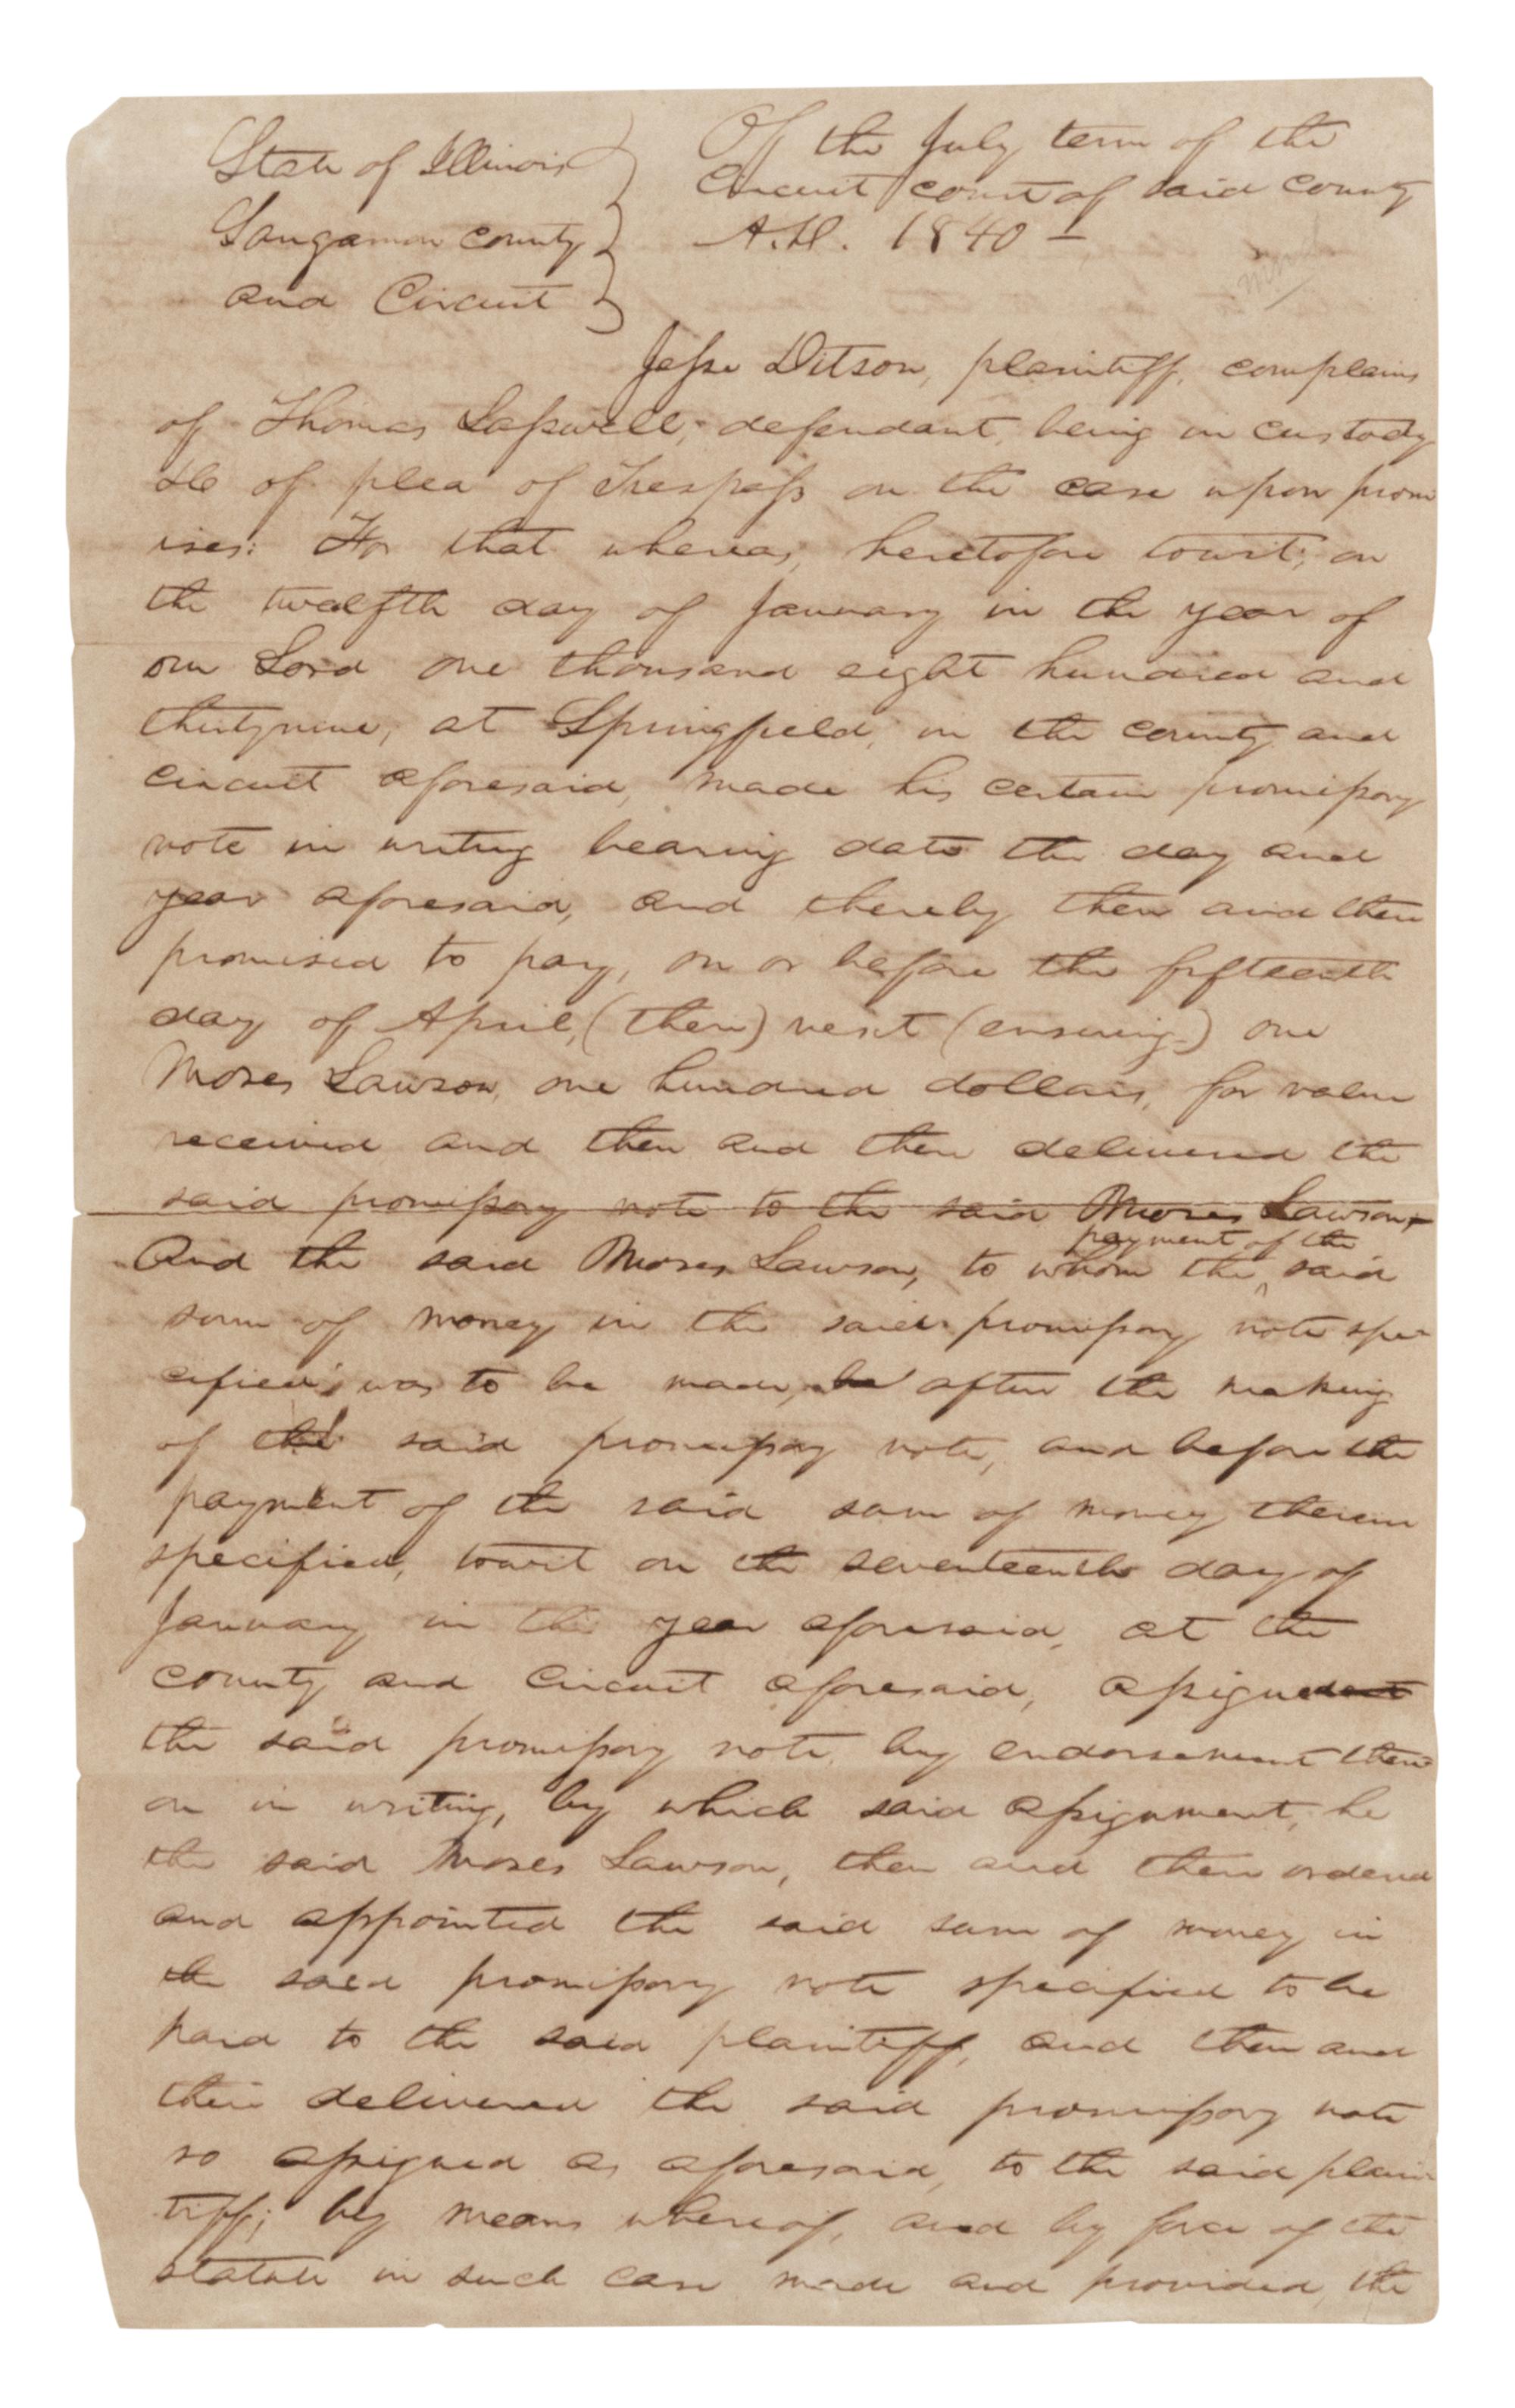 State of Illinois
Sangamon county
and Circuit
Of the July term of the
Circuit court of said county
A.D. 1840 –
Jesse Ditson, plaintiff, complains
of Thomas Laswell, defendant, being in custody
&c of plea of Trespass on the case upon prom
ises: For that whereas, heretofore towit, on
the twelfth day of January in the year of
our Lord one thousand eight hundred and
thirtynine, at Springfield, in the county and
circuit aforesaid, made his certain promissory
note in writing bearing date the day and
year aforesaid, and thereby then and there
promised to pay, on or before the fifteenth
day of April, (then) next (ensuing) one
Moses Lawson, one hundred dollars, for value
received and then and there delivered the
said promissory note to the said Moses Lawson
payment of the
And the said Moses Lawson, to whom the said
sum of money in the said promissory note spe-
cified, was to be made, he after the making
of the said promissory note, and before the
payment of the said sum of money therein
specified, towit on the seventeenth day of
January in the year aforesaid, at the
county and circuit aforesaid, assigned
the said promissory note, by endorsement there
on in writing, by which said assignment, he
the said Moses Lawson, then and there ordered
and appointed the said sum of money in
the said promissory note specified to be
paid to the said plaintiff, and then and
there delivered the said promissory note
so assigned as aforesaid, to the said plain-
tiff; by means whereof, and by force of the
statute in such case made and provided, the